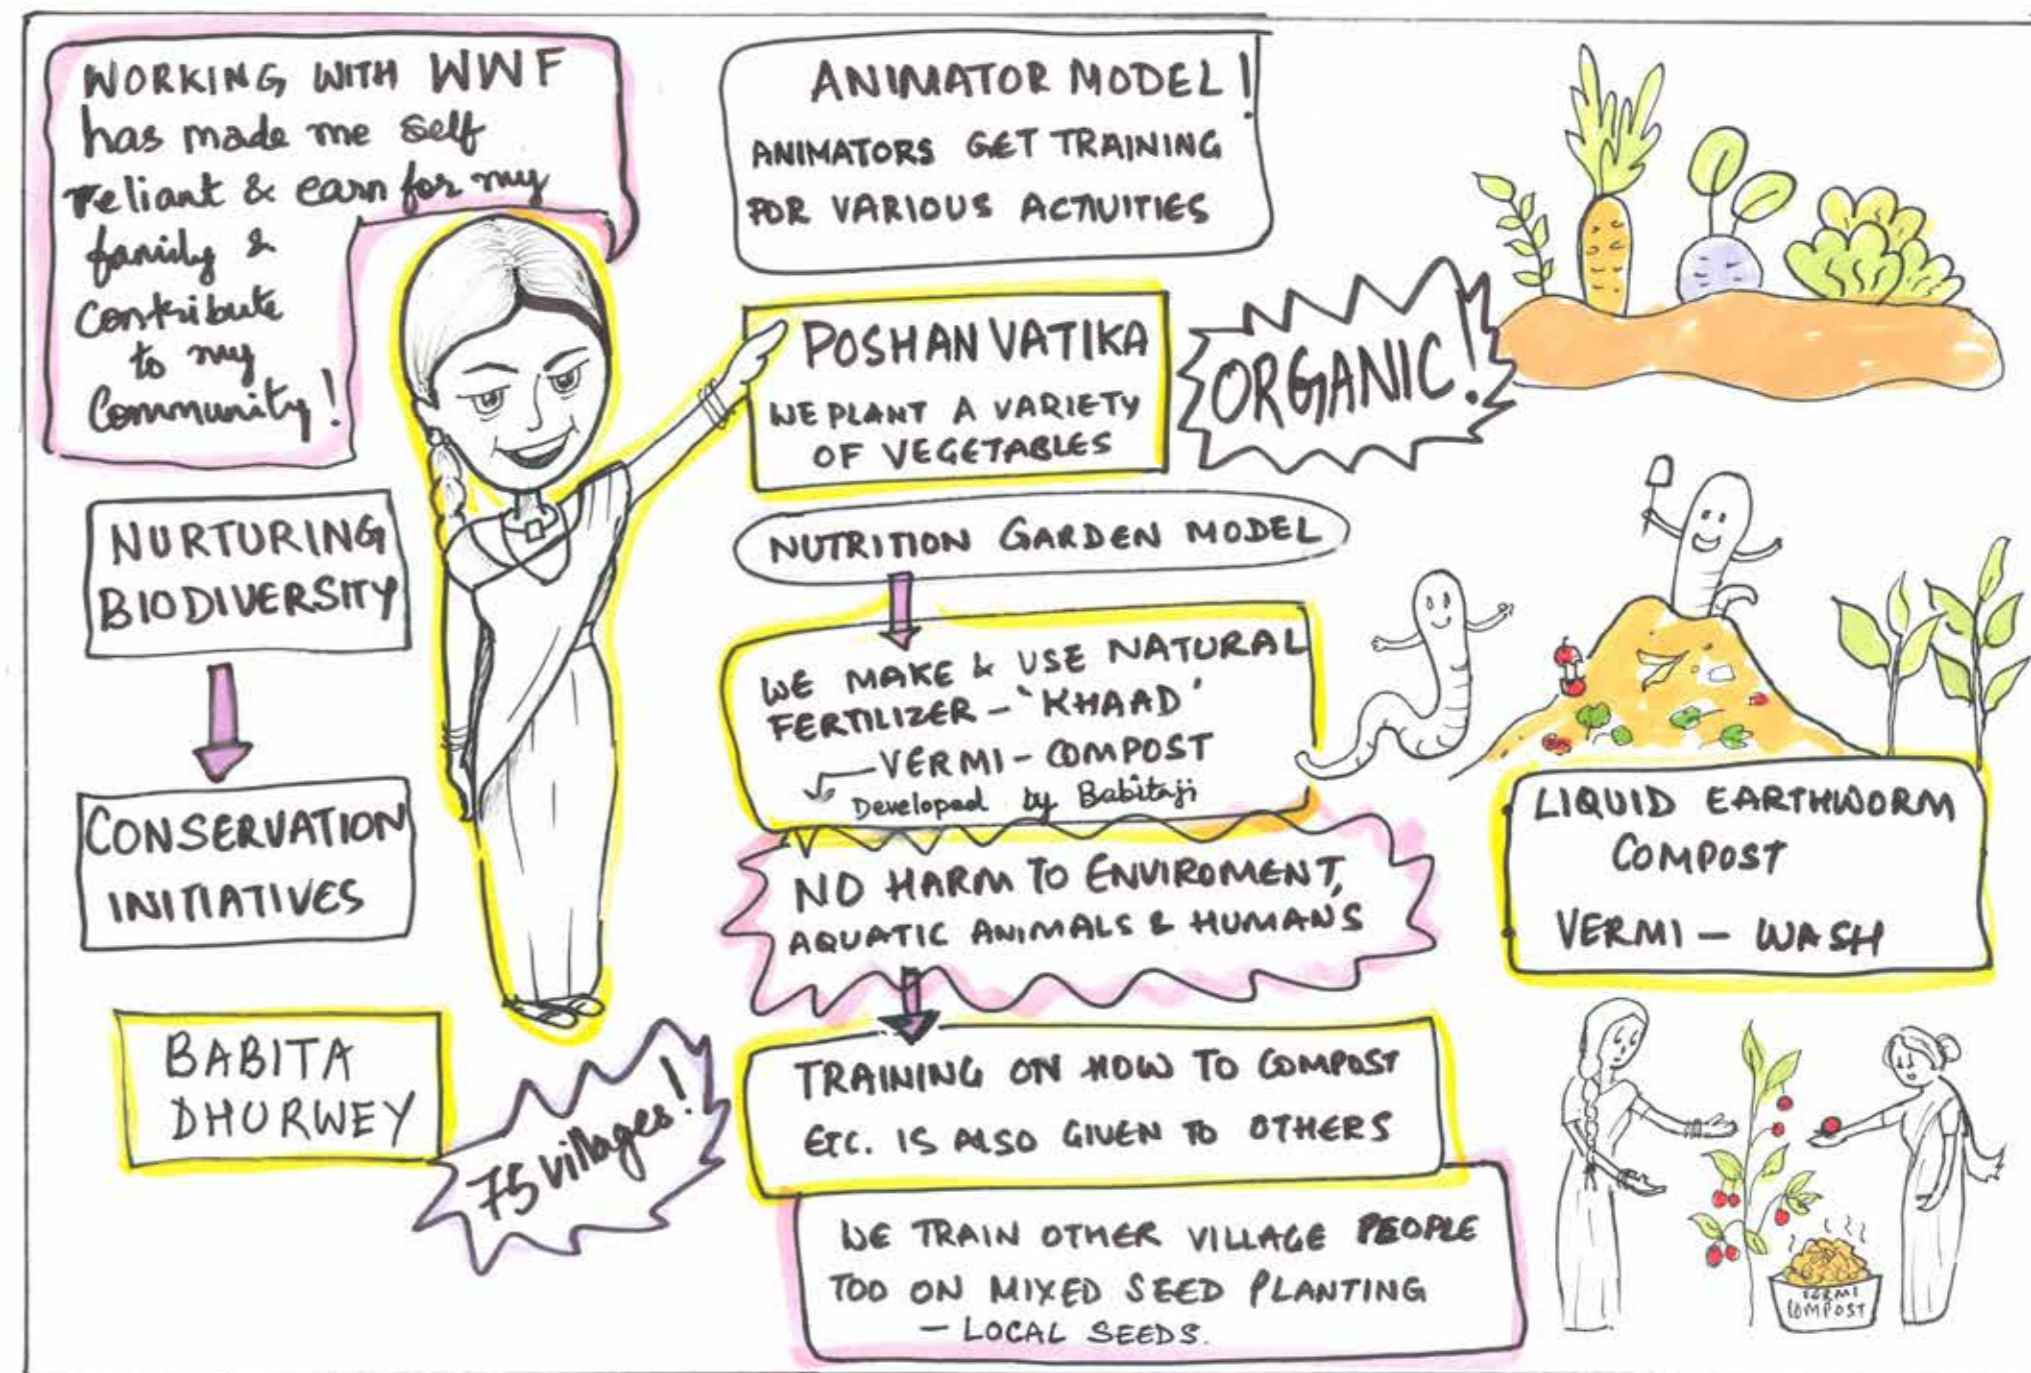 WORKING WITH WWF
has made me self
reliant & earn for my
family &
contribute
to my
Community!
NURTURING
BIODIVERSITY
CONSERVATION
INITIATIVES
BABITA
DHURWEY
75 villages!
ANIMATOR MODEL!
ANIMATORS GET TRAINING
FOR VARIOUS ACTIVITIES
POSHAN VATIKA
WE PLANT A VARIETY
OF VEGETABLES
ORGANIC!
NUTRITION GARDEN MODEL
WE MAKE & USE NATURAL
FERTILIZER - 'KHAAD'
VERMI - COMPOST
Developed by Babitaji
NO HARM TO ENVIROMENT,
AQUATIC ANIMALS & HUMANS
TRAINING ON HOW TO COMPOST
ETC. IS ALSO GIVEN TO OTHERS
WE TRAIN OTHER VILLAGE PEOPLE
TOO ON MIXED SEED PLANTING
- LOCAL SEEDS.
LIQUID EARTHWORM
COMPOST
VERMI - WASH
VERMI
COMPOST